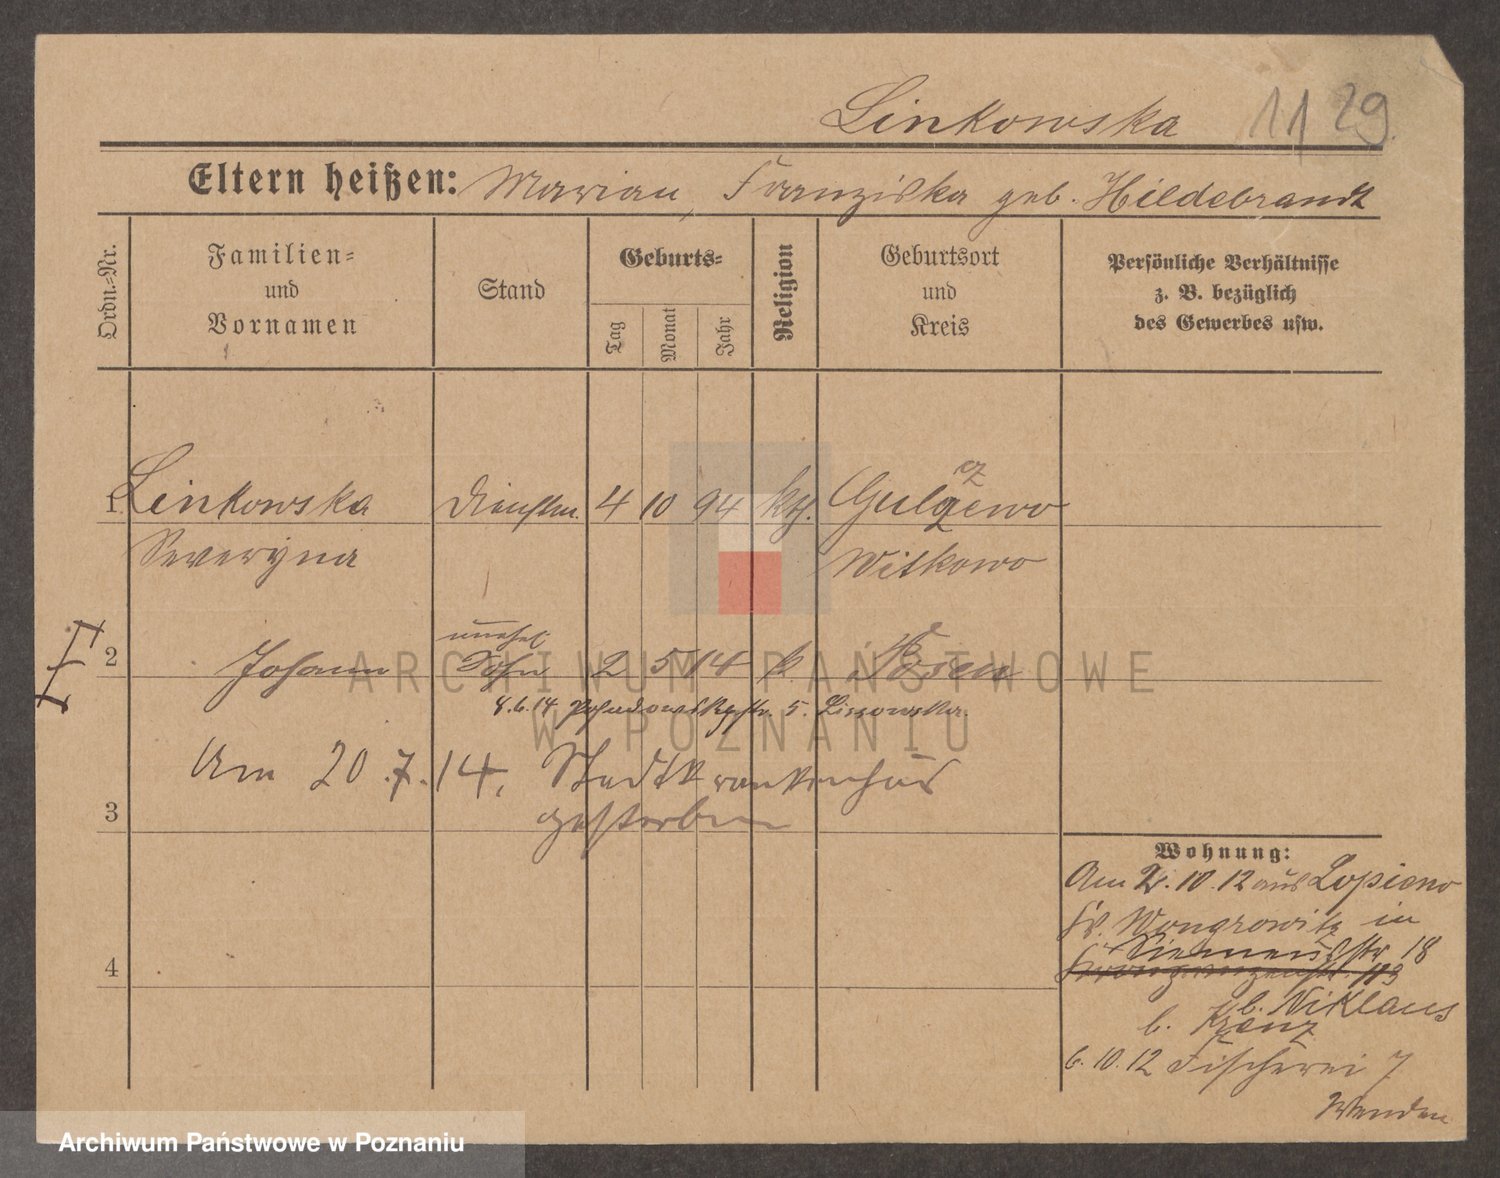 Linkowska 11 29.
Eltern heißen: Marian, Franziska geb. Hildebrandt
Ordn.-Nr.
Familien- und Vornamen
Stand
Geburts-
Tag
Monat
Jahr
Religion
Geburtsort und Kreis
Persönliche Verhältnisse z. B. bezüglich des Gewerbes usw.
1 Linkowska Dienstm. 4 10 94 kth. Gulczewo
cz
Severyna Witkowo
unehel.
2 Johann Sohn 2 5 14 k. Posen
8.6.14 5. Lissowska.
Am 20.7.14, Stadtkrankenhaus
3 gestorben
4
Wohnung:
Am 2.10.12 aus Lopieno
Kr. Wongrowitz in
18
113
b. Niklaus
b. Krenz
6.10.12 Fischerei 7
Wenden
ARCHIWUM PAŃSTWOWE
W POZNANIU
Archiwum Państwowe w Poznaniu